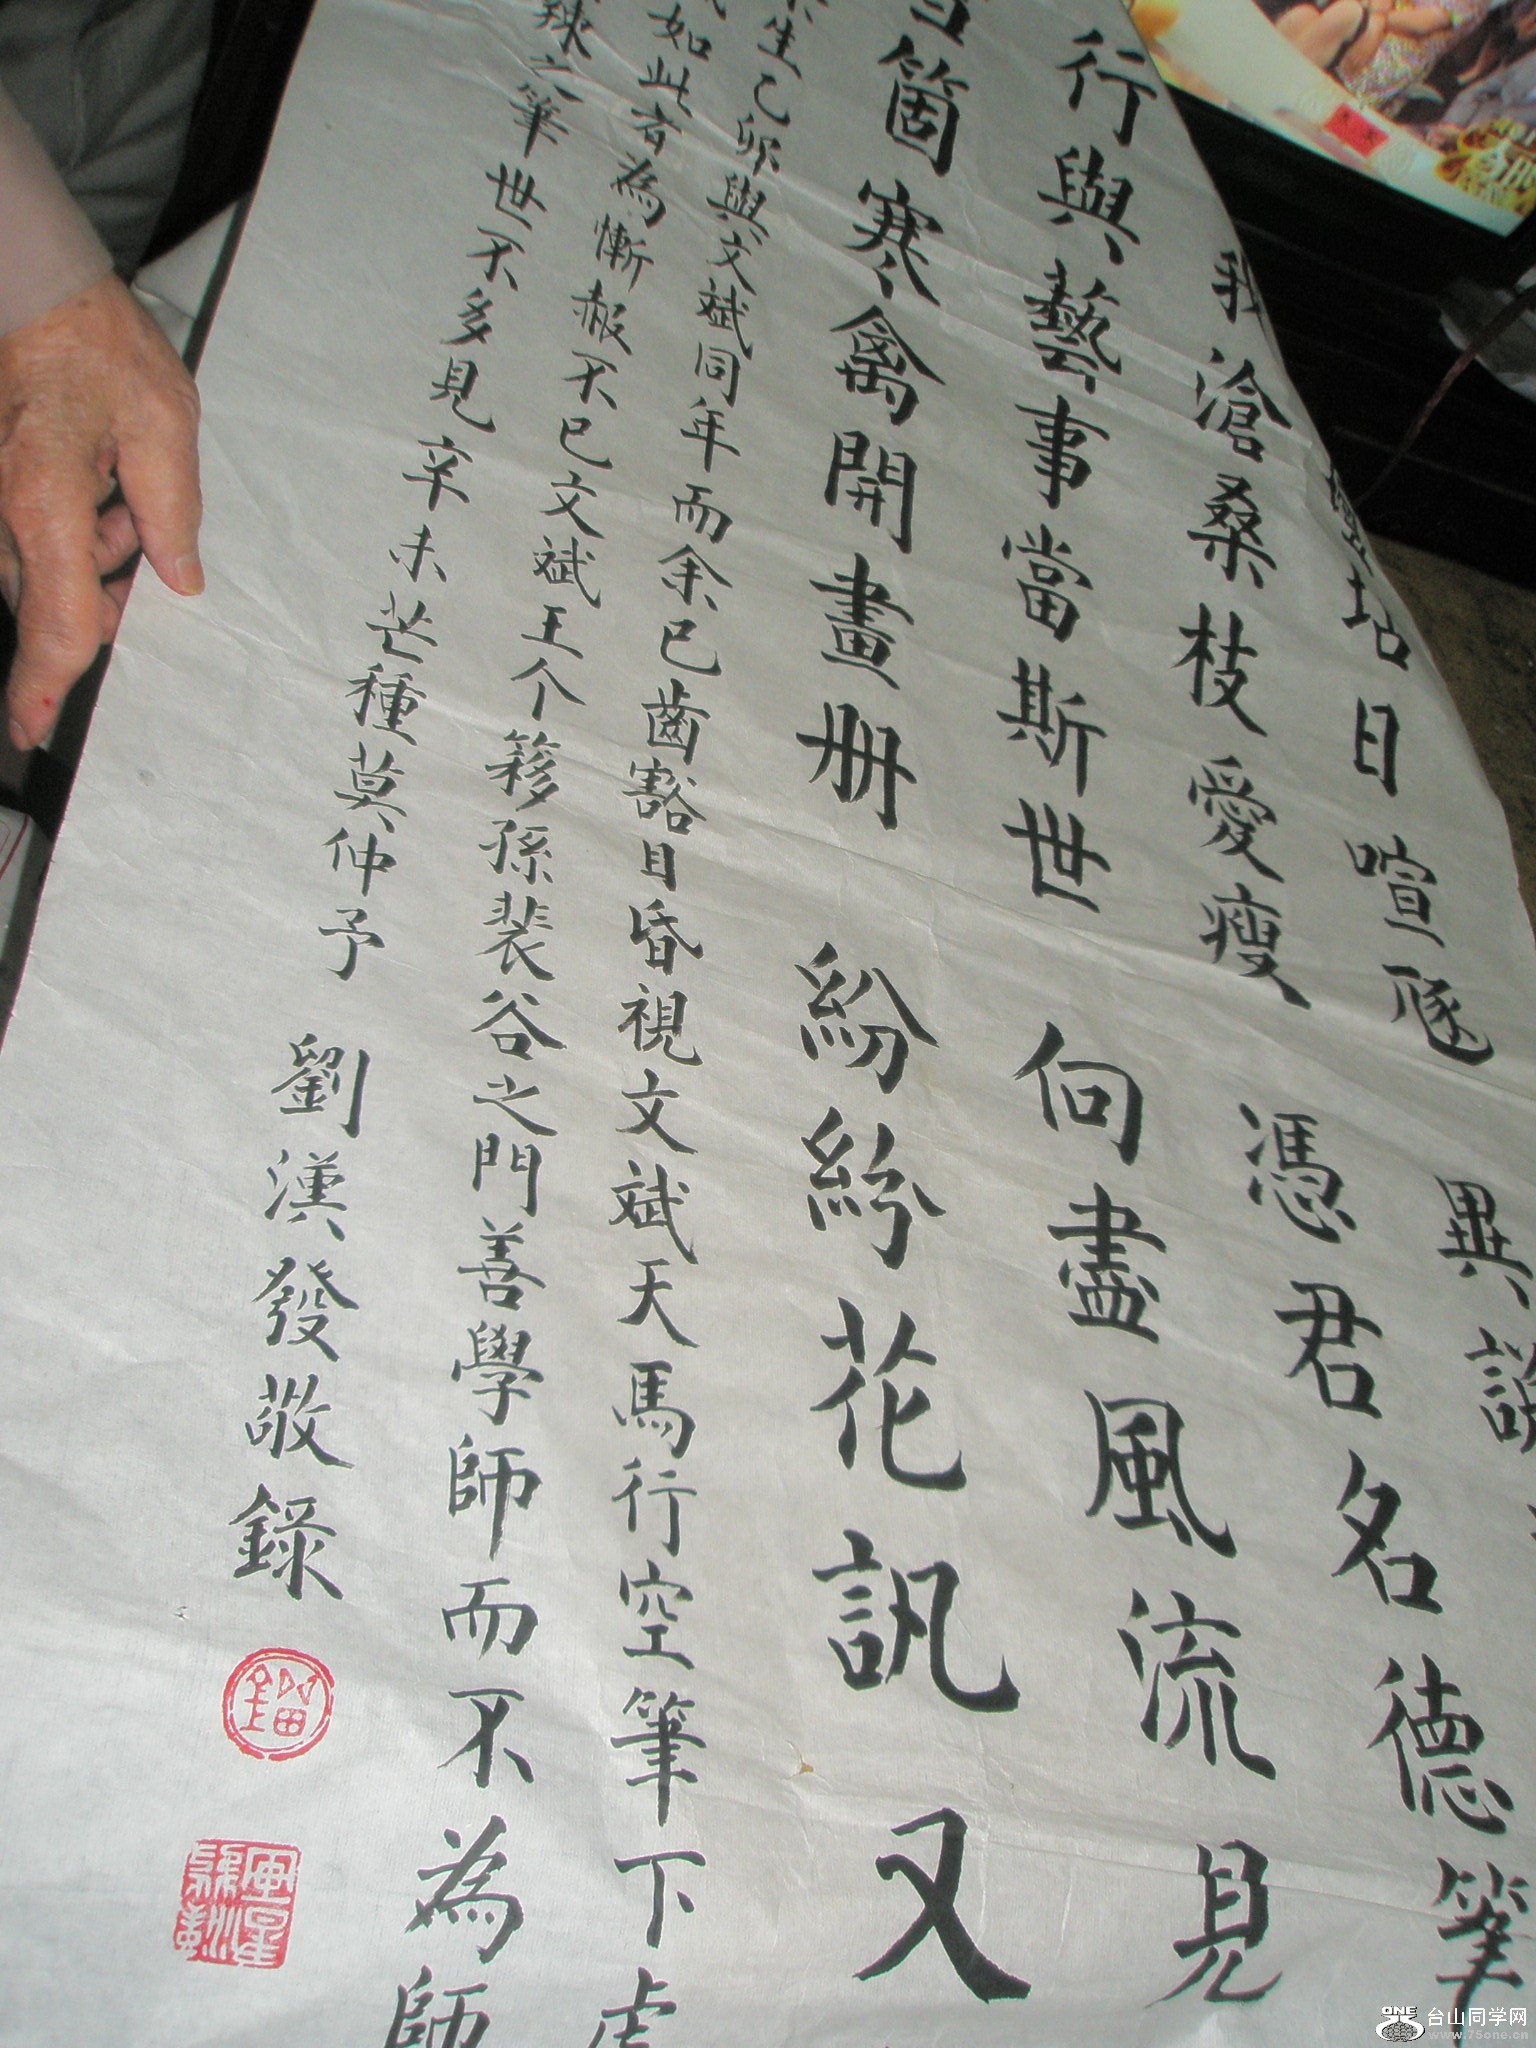 異説
壇坫日喧豗
我滄桑枝愛瘦 憑君名德筆
行與藝事當斯世 向盡風流見
箇寒禽開畫册 紛紛花訊又
生己卯與文斌同年而余已齒豁目昏視文斌天馬行空筆下
如此者為慚赧不已文斌王个簃孫裴谷之門善學師而不為師
辣之筆世不多見辛未芒種莫仲予 劉漢發敬錄
ONE 台山同学网
www.75one.cn